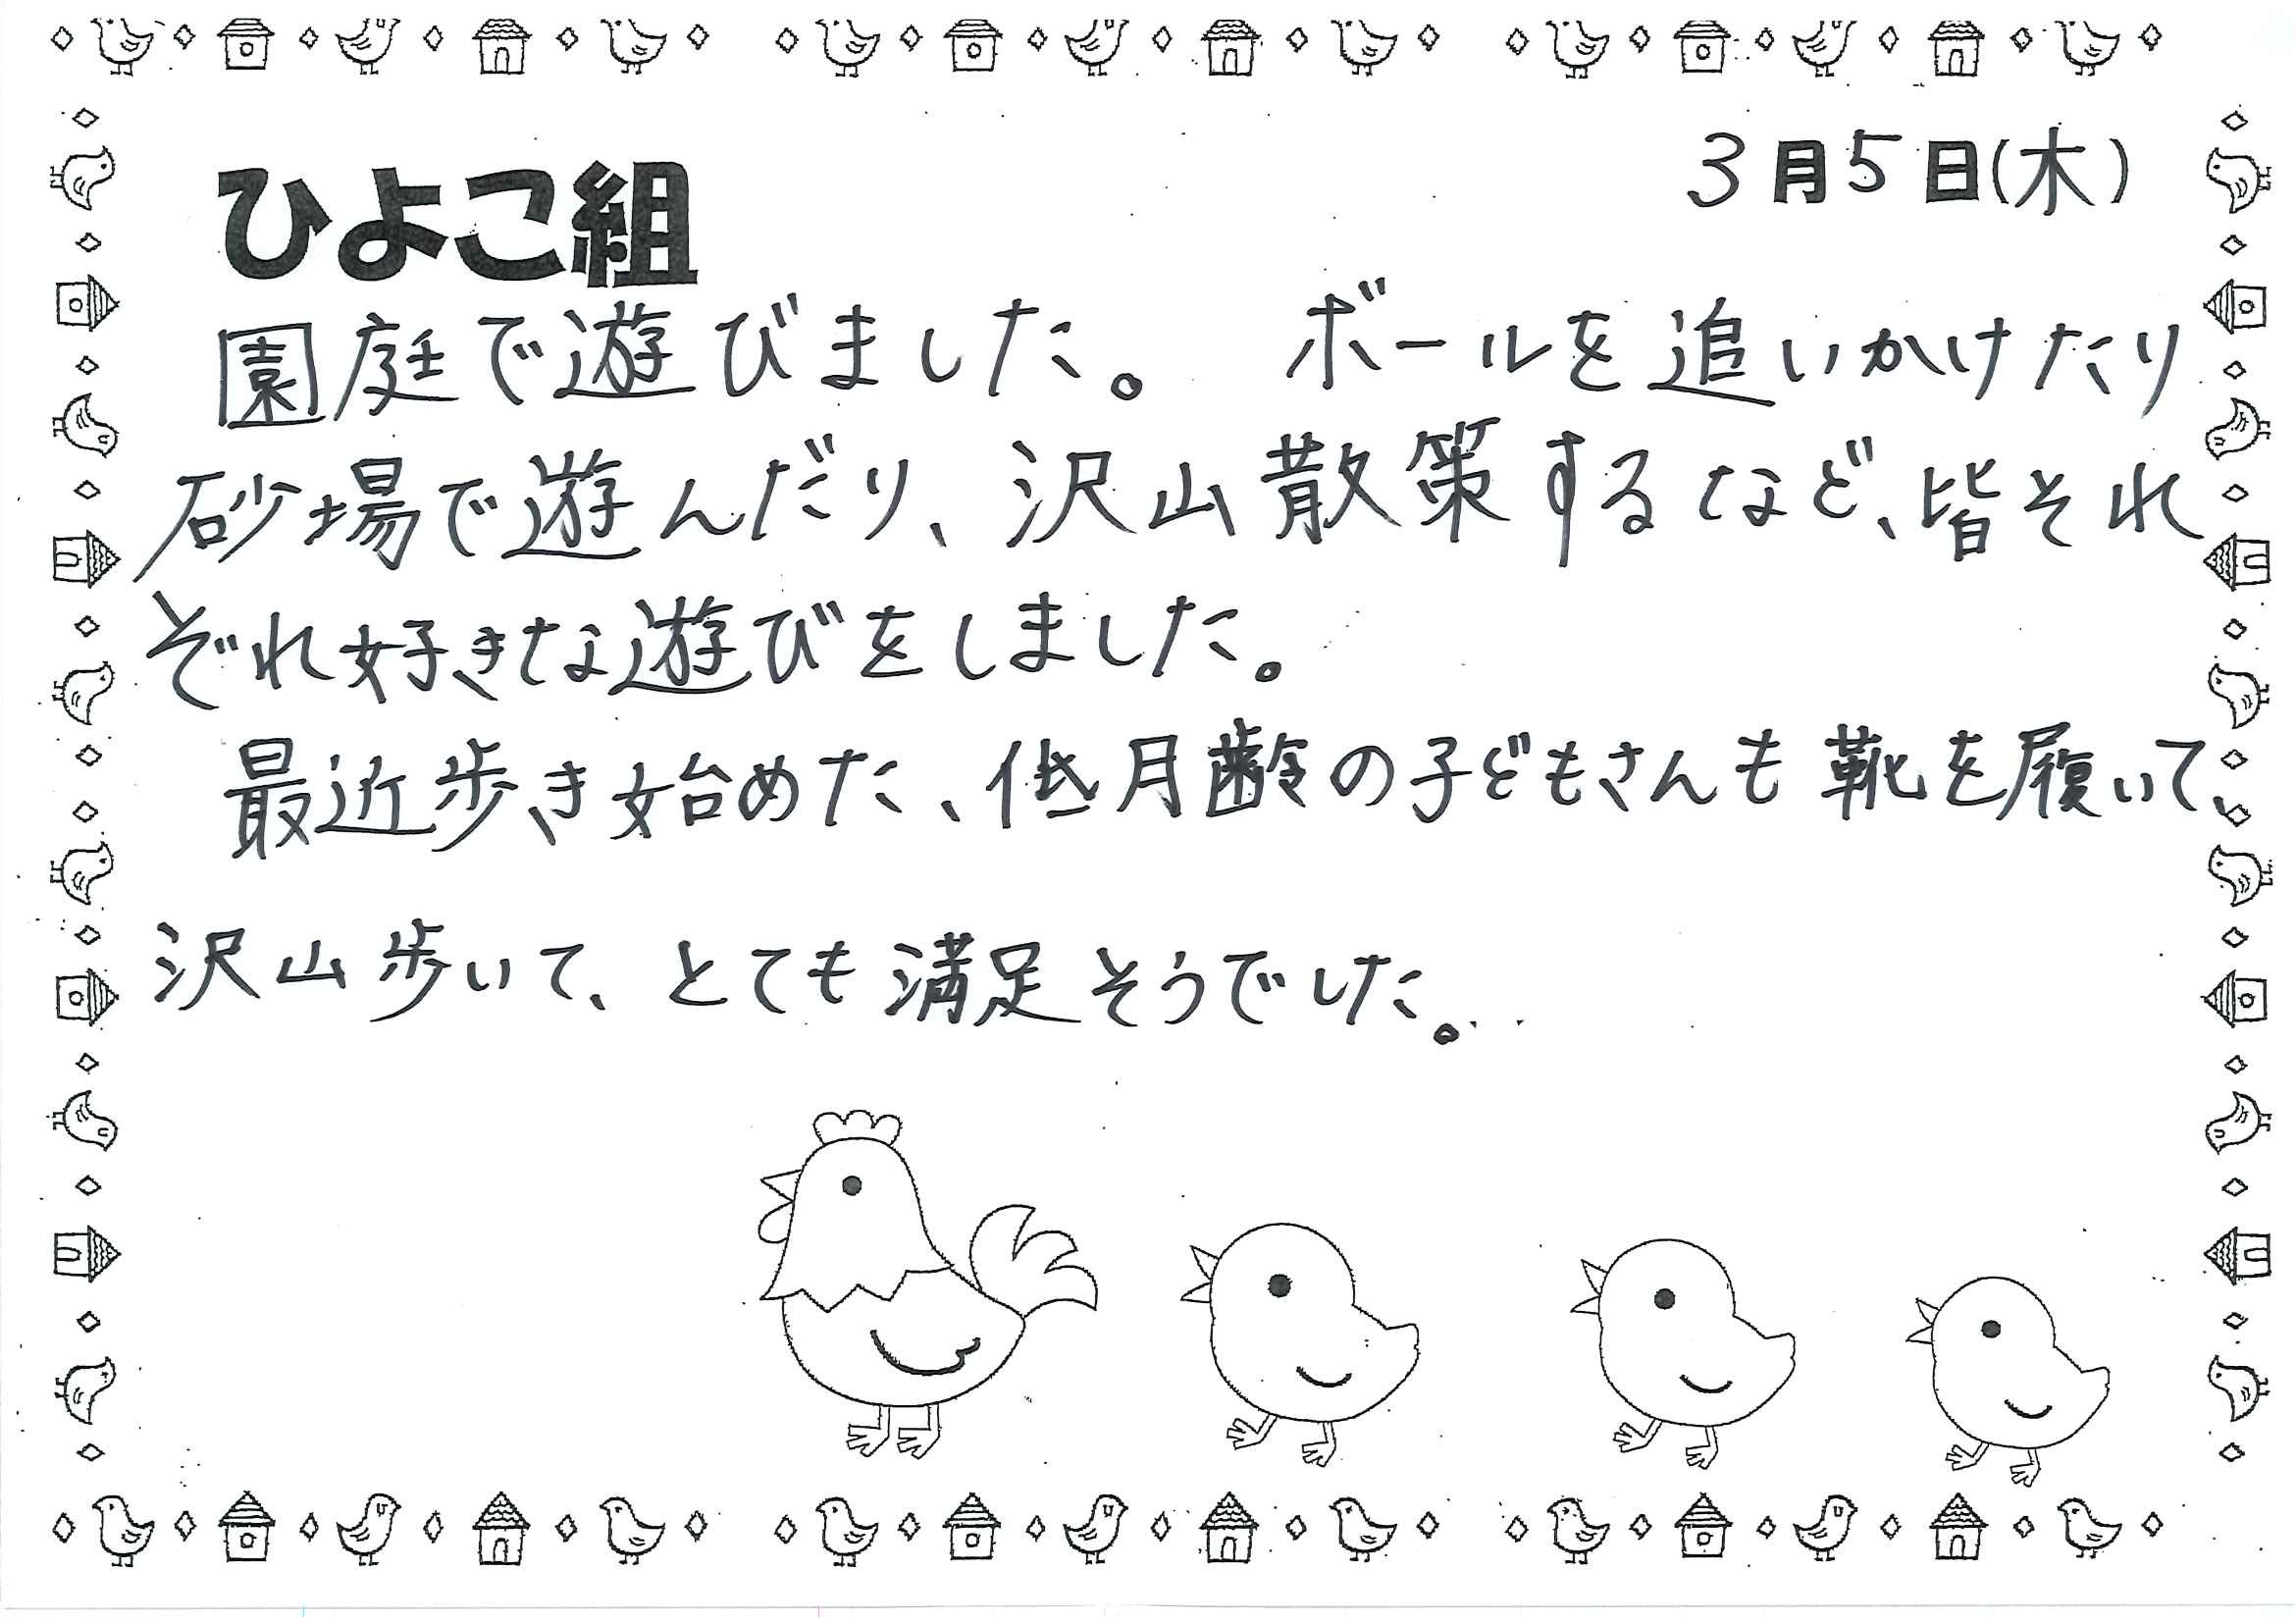 3月5日(木)
ひよこ組
園庭で遊びました。 ボールを追いかけたり
砂場で遊んだり、沢山散策するなど、皆それ
ぞれ好きな遊びをしました。
最近歩き始めた、低月齢の子どもさんも靴を履いて、
沢山歩いて、とても満足そうでした。